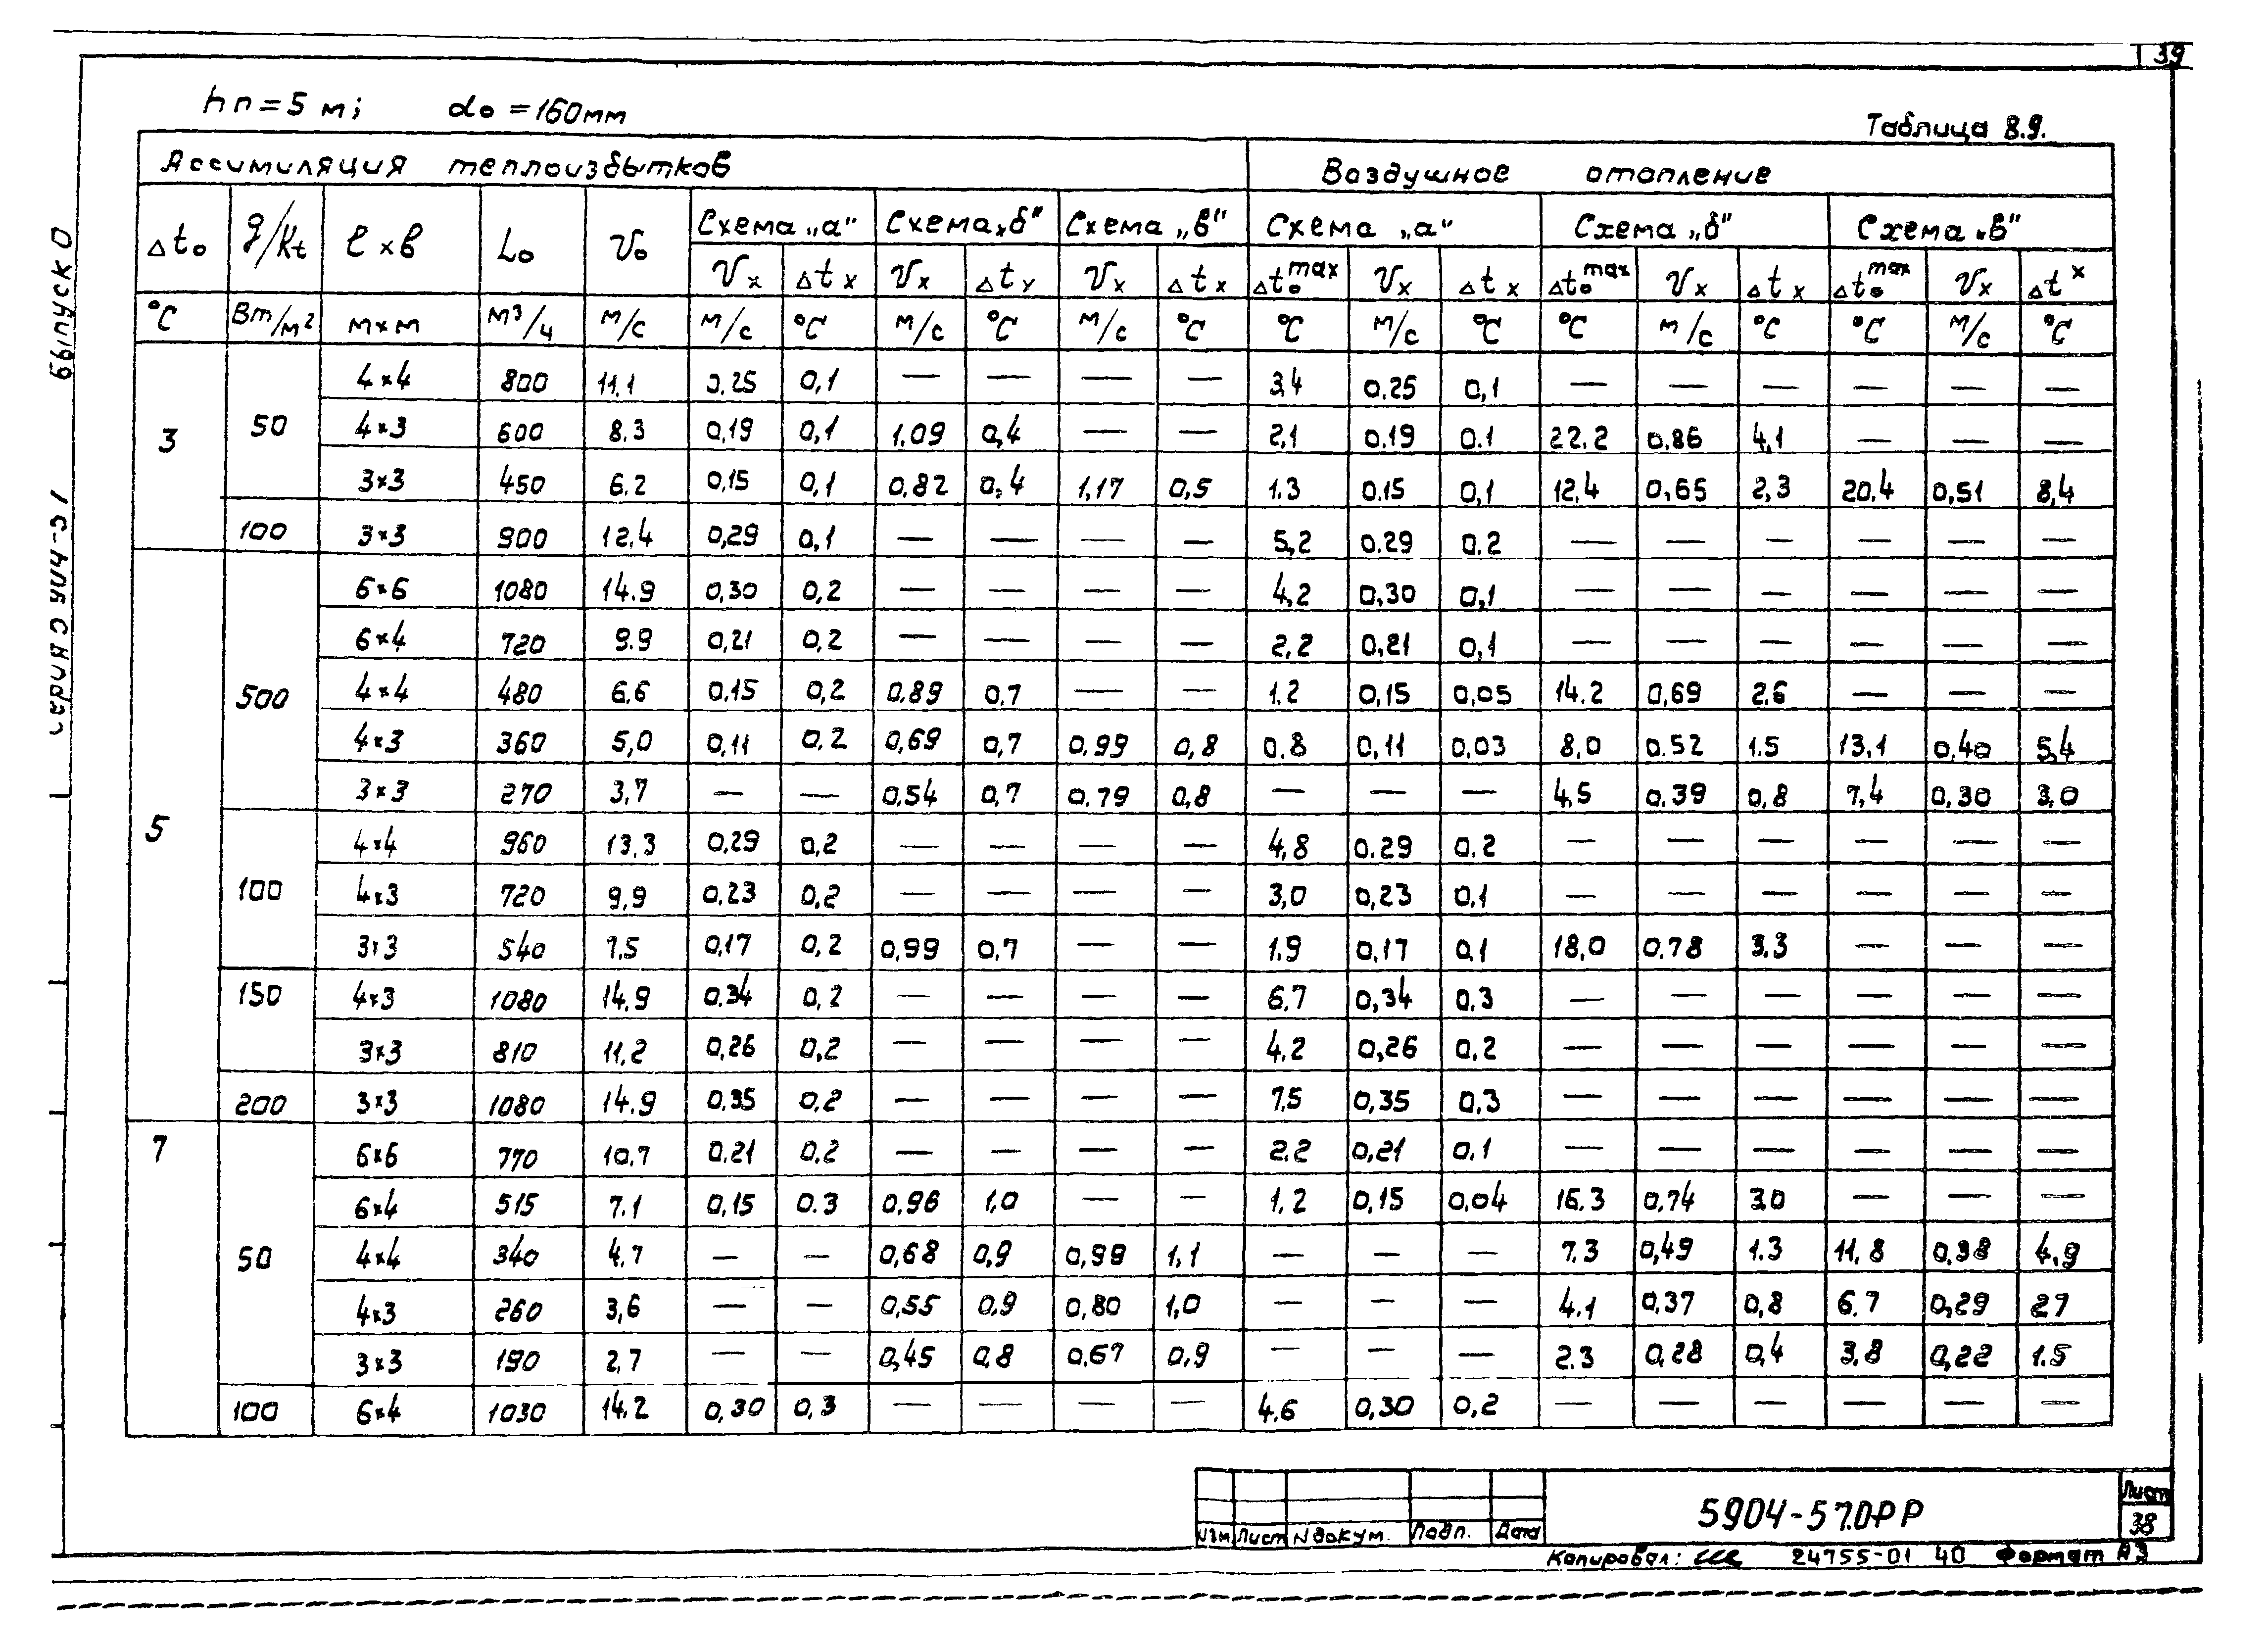 39
hп = 5 м; do = 160мм
Таблица 8.9.
Ассимиляция теплоизбытков Воздушное отопление
Δto q/kt l×в Lo Vo Схема „а" Схема „б" Схема „в" Схема „а" Схема „б" Схема „в"
Vx Δtx Vx Δtx Vx Δtx Δto max Vx Δtx Δto max Vx Δtx Δto max Vx Δt x
°С Вт/м² м×м м³/ч м/с м/с °С м/с °С м/с °С °С м/с °С °С м/с °С °С м/с °С
3 50 4×4 800 11.1 0.25 0,1 — — — — 3,4 0.25 0,1 — — — — — —
4×3 600 8.3 0,19 0,1 1.09 0,4 — — 2,1 0.19 0.1 22.2 0,86 4,1 — — —
3×3 450 6.2 0,15 0,1 0,82 0,4 1,17 0,5 1.3 0.15 0,1 12,4 0,65 2,3 20,4 0,51 8,4
100 3×3 900 12.4 0,29 0,1 — — — — 5,2 0.29 0.2 — — — — — —
5 500 6×6 1080 14.9 0,30 0,2 — — — — 4,2 0,30 0,1 — — — — — —
6×4 720 9.9 0,21 0,2 — — — — 2,2 0,21 0,1 — — — — — —
4×4 480 6.6 0.15 0,2 0.89 0.7 — — 1.2 0,15 0,05 14.2 0,69 2.6 — — —
4×3 360 5,0 0,11 0.2 0,69 0,7 0.99 0,8 0.8 0,11 0,03 8,0 0.52 1.5 13,1 0,40 5,4
3×3 270 3,7 — — 0,54 0,7 0.79 0,8 — — — 4,5 0.39 0,8 7,4 0,30 3,0
100 4×4 960 13.3 0.29 0,2 — — — — 4,8 0.29 0.2 — — — — — —
4×3 720 9,9 0.23 0,2 — — — — 3,0 0,23 0.1 — — — — — —
3×3 540 7,5 0,17 0,2 0,99 0,7 — — 1.9 0,17 0,1 18,0 0.78 3.3 — — —
150 4×3 1080 14,9 0.34 0,2 — — — — 6.7 0,34 0,3 — — — — — —
3×3 810 11,2 0,26 0,2 — — — — 4.2 0,26 0,2 — — — — — —
200 3×3 1080 14.9 0.35 0,2 — — — — 7,5 0,35 0,3 — — — — — —
7 50 6×6 770 10.7 0.21 0,2 — — — — 2.2 0,21 0.1 — — — — — —
6×4 515 7.1 0,15 0.3 0,96 1,0 — — 1,2 0,15 0,04 16.3 0,74 3.0 — — —
4×4 340 4.7 — — 0,68 0,9 0,99 1,1 — — — 7.3 0,49 1.3 11,8 0,38 4,9
4×3 260 3,6 — — 0,55 0,9 0,80 1,0 — — — 4.1 0,37 0,8 6.7 0,29 2,7
3×3 190 2,7 — — 0,45 0,8 0,67 0,9 — — — 2.3 0,28 0,4 3,8 0,22 1.5
100 6×4 1030 14.2 0,30 0,3 — — — — 4.6 0,30 0,2 — — — — — —
серия 5.904-57 выпуск 0
5904-57.0РР
Лист
38
Изм Лист N докум. Подп. Дата
Копировал: 24755-01 40 Формат А3